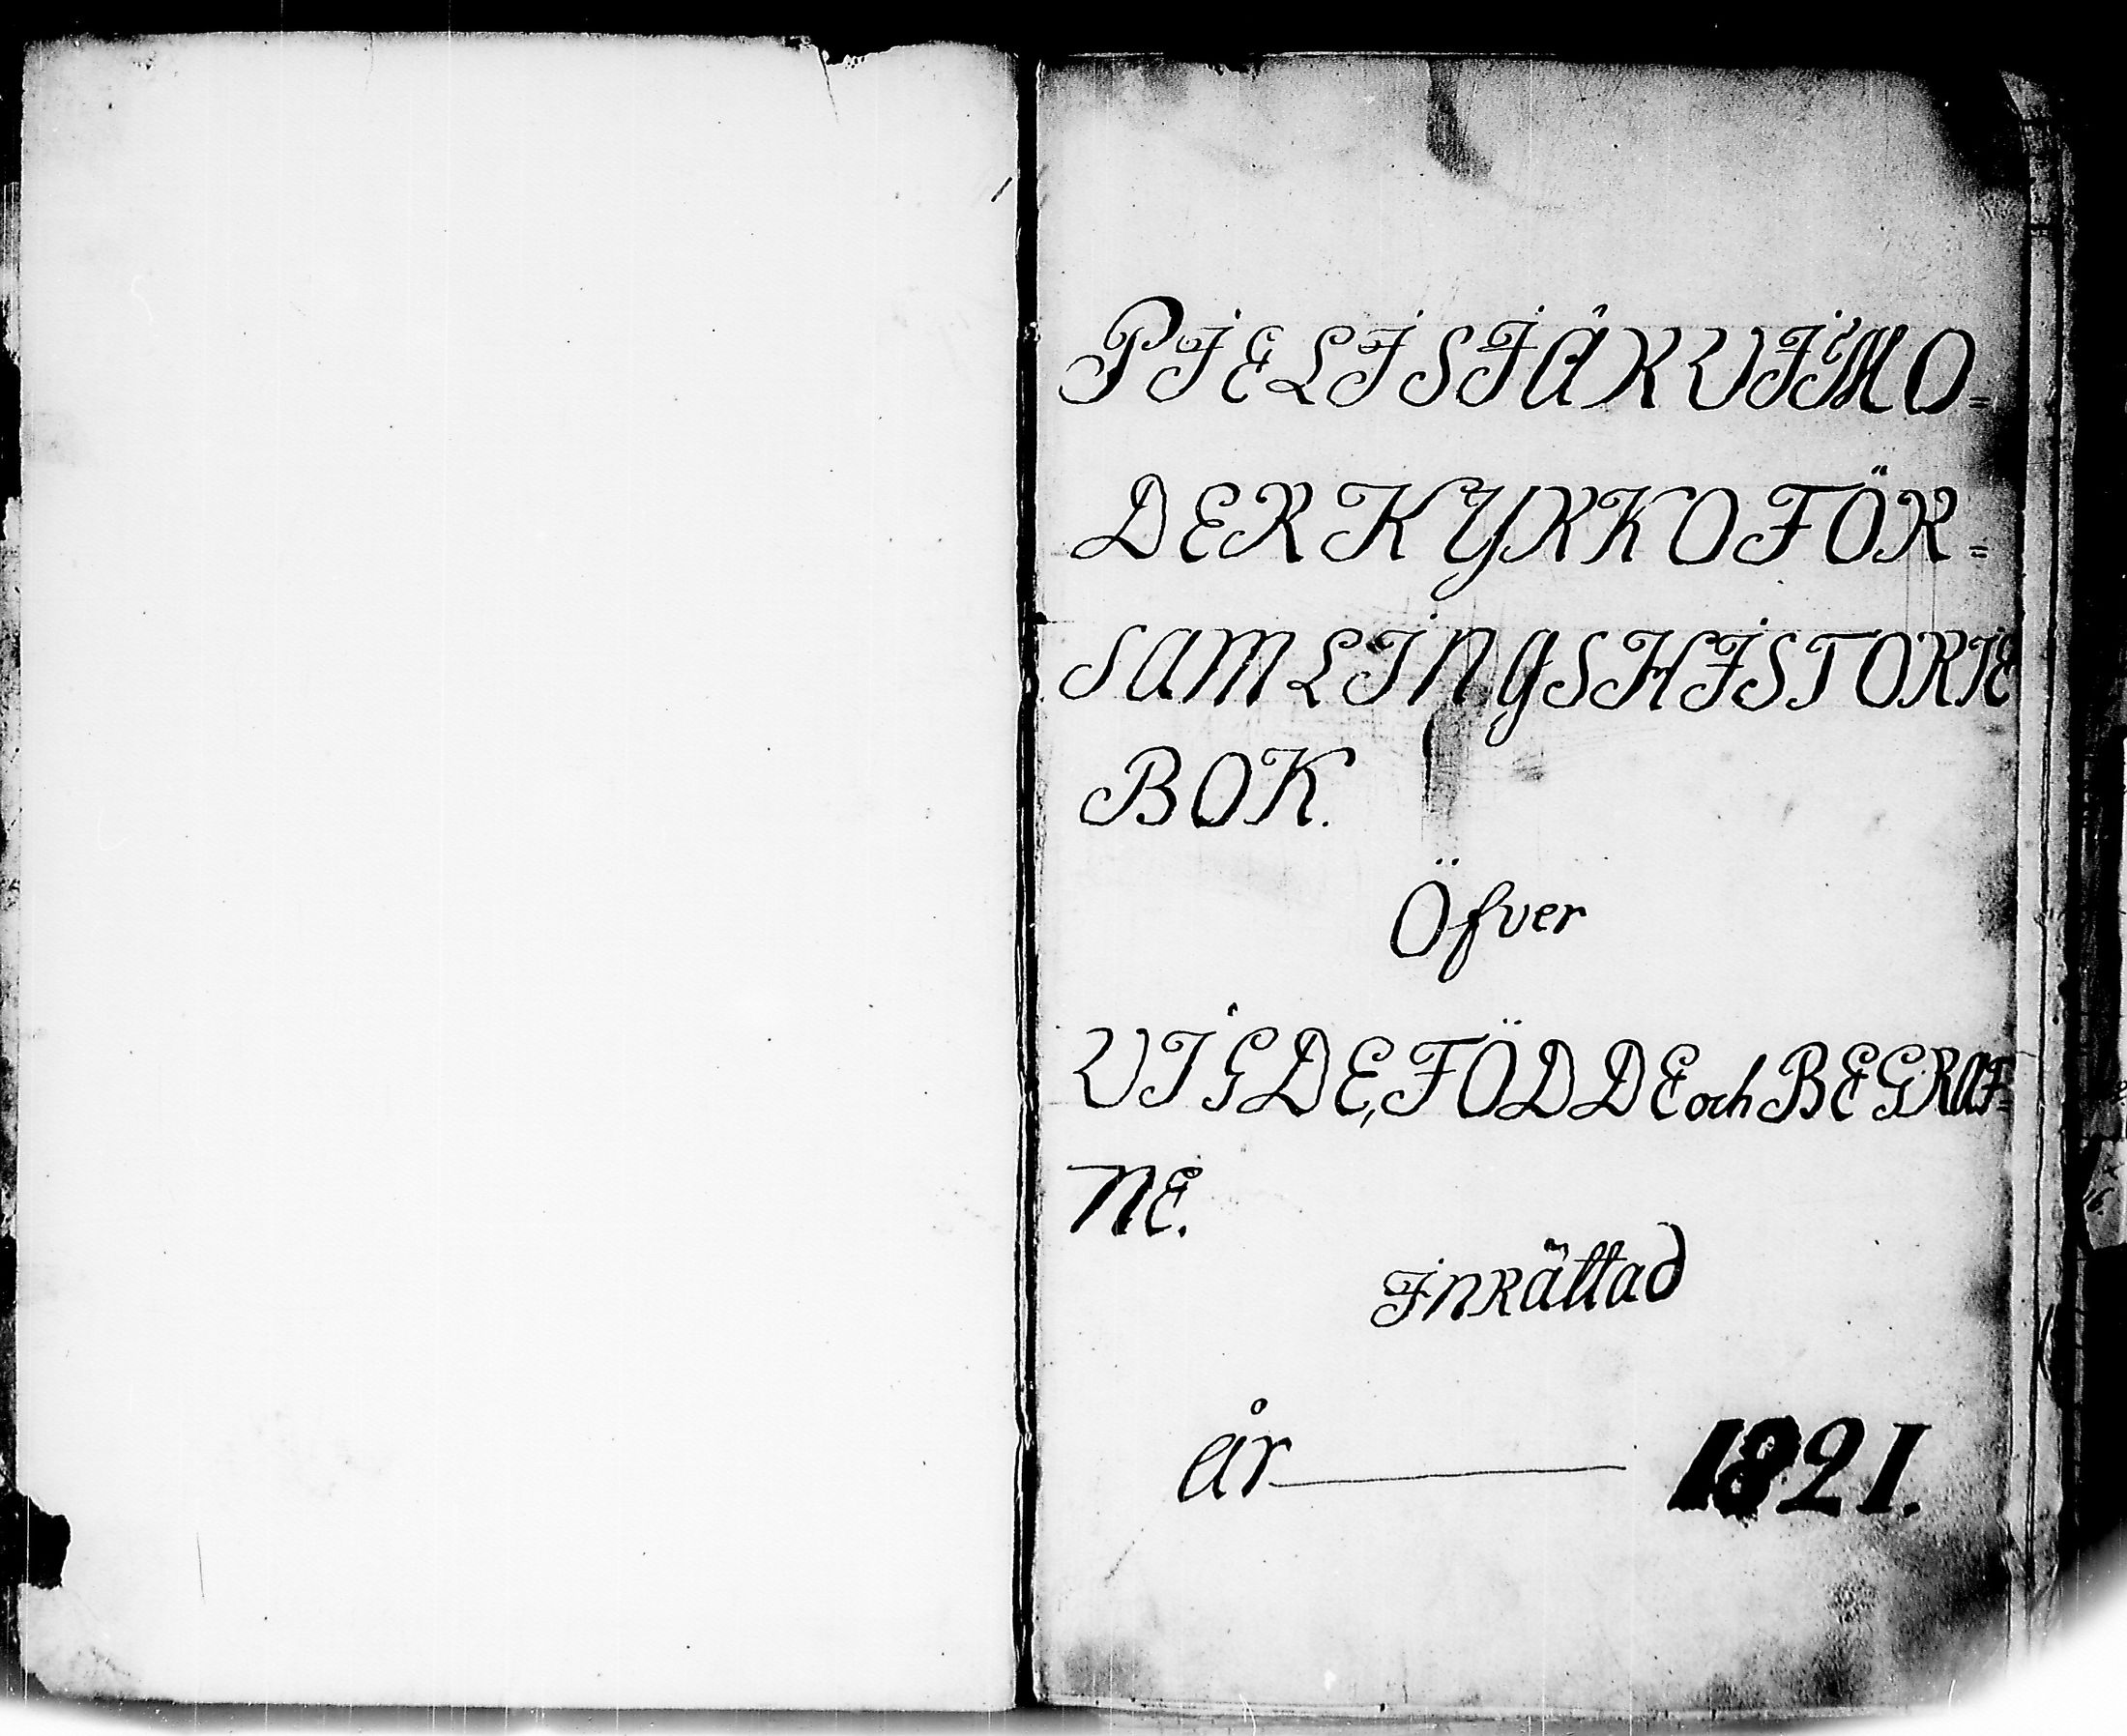 PIELISIÄRVI MO=
DERKYRKOFÖR=
SAMLINGSHISTORIE
BOK.
Öfver
VIGDE, FÖDDE och BEGRAF=
NE.
Inrättad
år 1821.